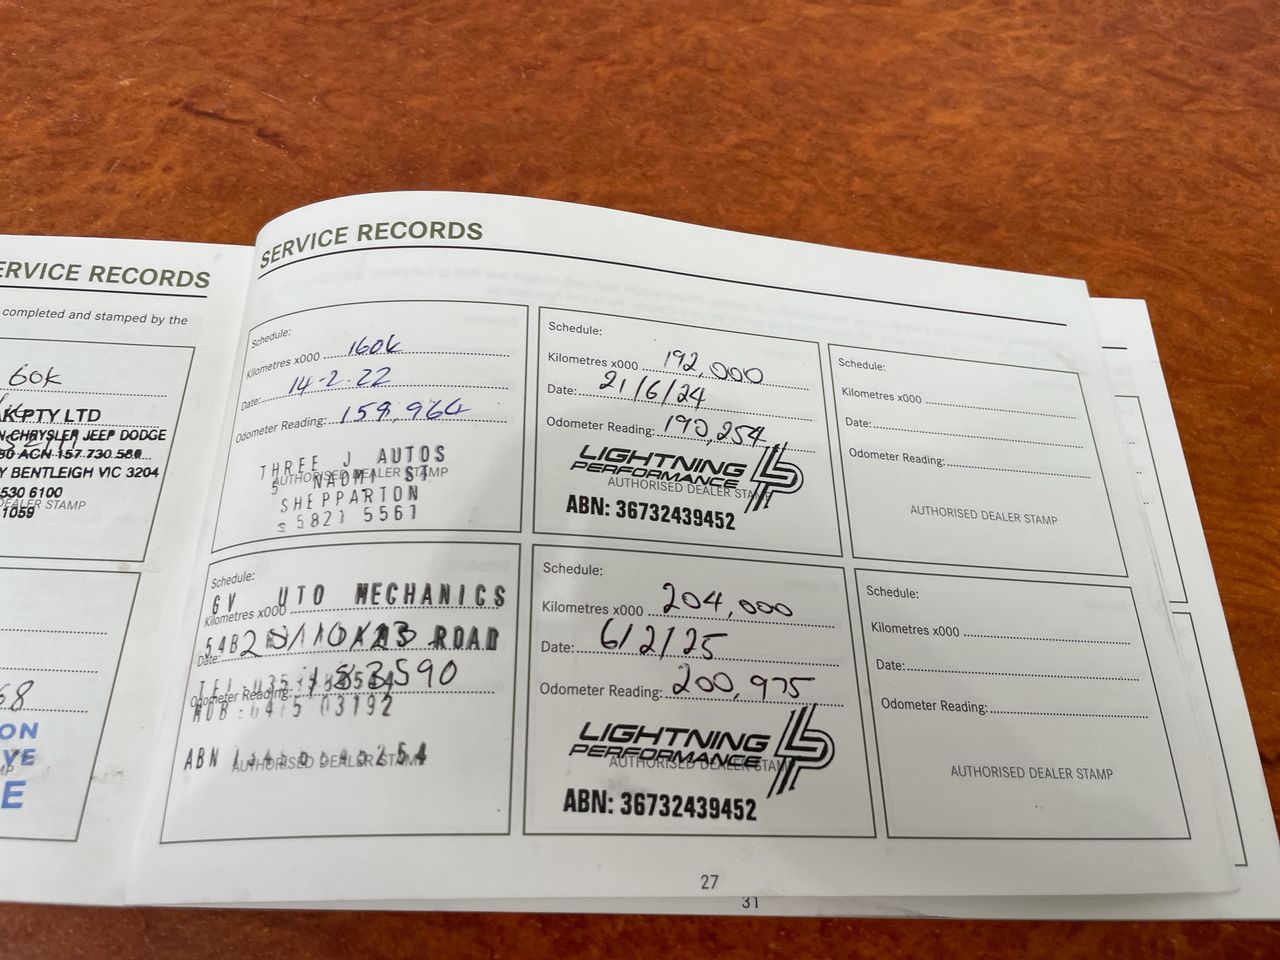 ERVICE RECORDS
completed and stamped by the
60k
PTY LTD
CHRYSLER JEEP DODGE
ACN 157 730 580
Y BENTLEIGH VIC 3204
530 6100
DEALER STAMP
1059
68
ON
VE
E
SERVICE RECORDS
Schedule:
Kilometres x000 160k
Date: 14-2-22
Odometer Reading: 159,964
THREE J AUTOS
5 NAOMI ST
AUTHORISED DEALER STAMP
SHEPPARTON
5821 5561
Schedule:
Kilometres x000 192,000
Date: 21/6/24
Odometer Reading: 190,254
LIGHTNING
PERFORMANCE
AUTHORISED DEALER STAMP
ABN: 36732439452
Schedule:
Kilometres x000
Date:
Odometer Reading:
AUTHORISED DEALER STAMP
Schedule:
GV UTO MECHANICS
Kilometres x000
ROAD
Date:
Odometer Reading: 183590
ABN
AUTHORISED DEALER STAMP
Schedule:
Kilometres x000 204,000
Date: 6/2/25
Odometer Reading: 200,975
LIGHTNING
PERFORMANCE
AUTHORISED DEALER STAMP
ABN: 36732439452
Schedule:
Kilometres x000
Date:
Odometer Reading:
AUTHORISED DEALER STAMP
27
31